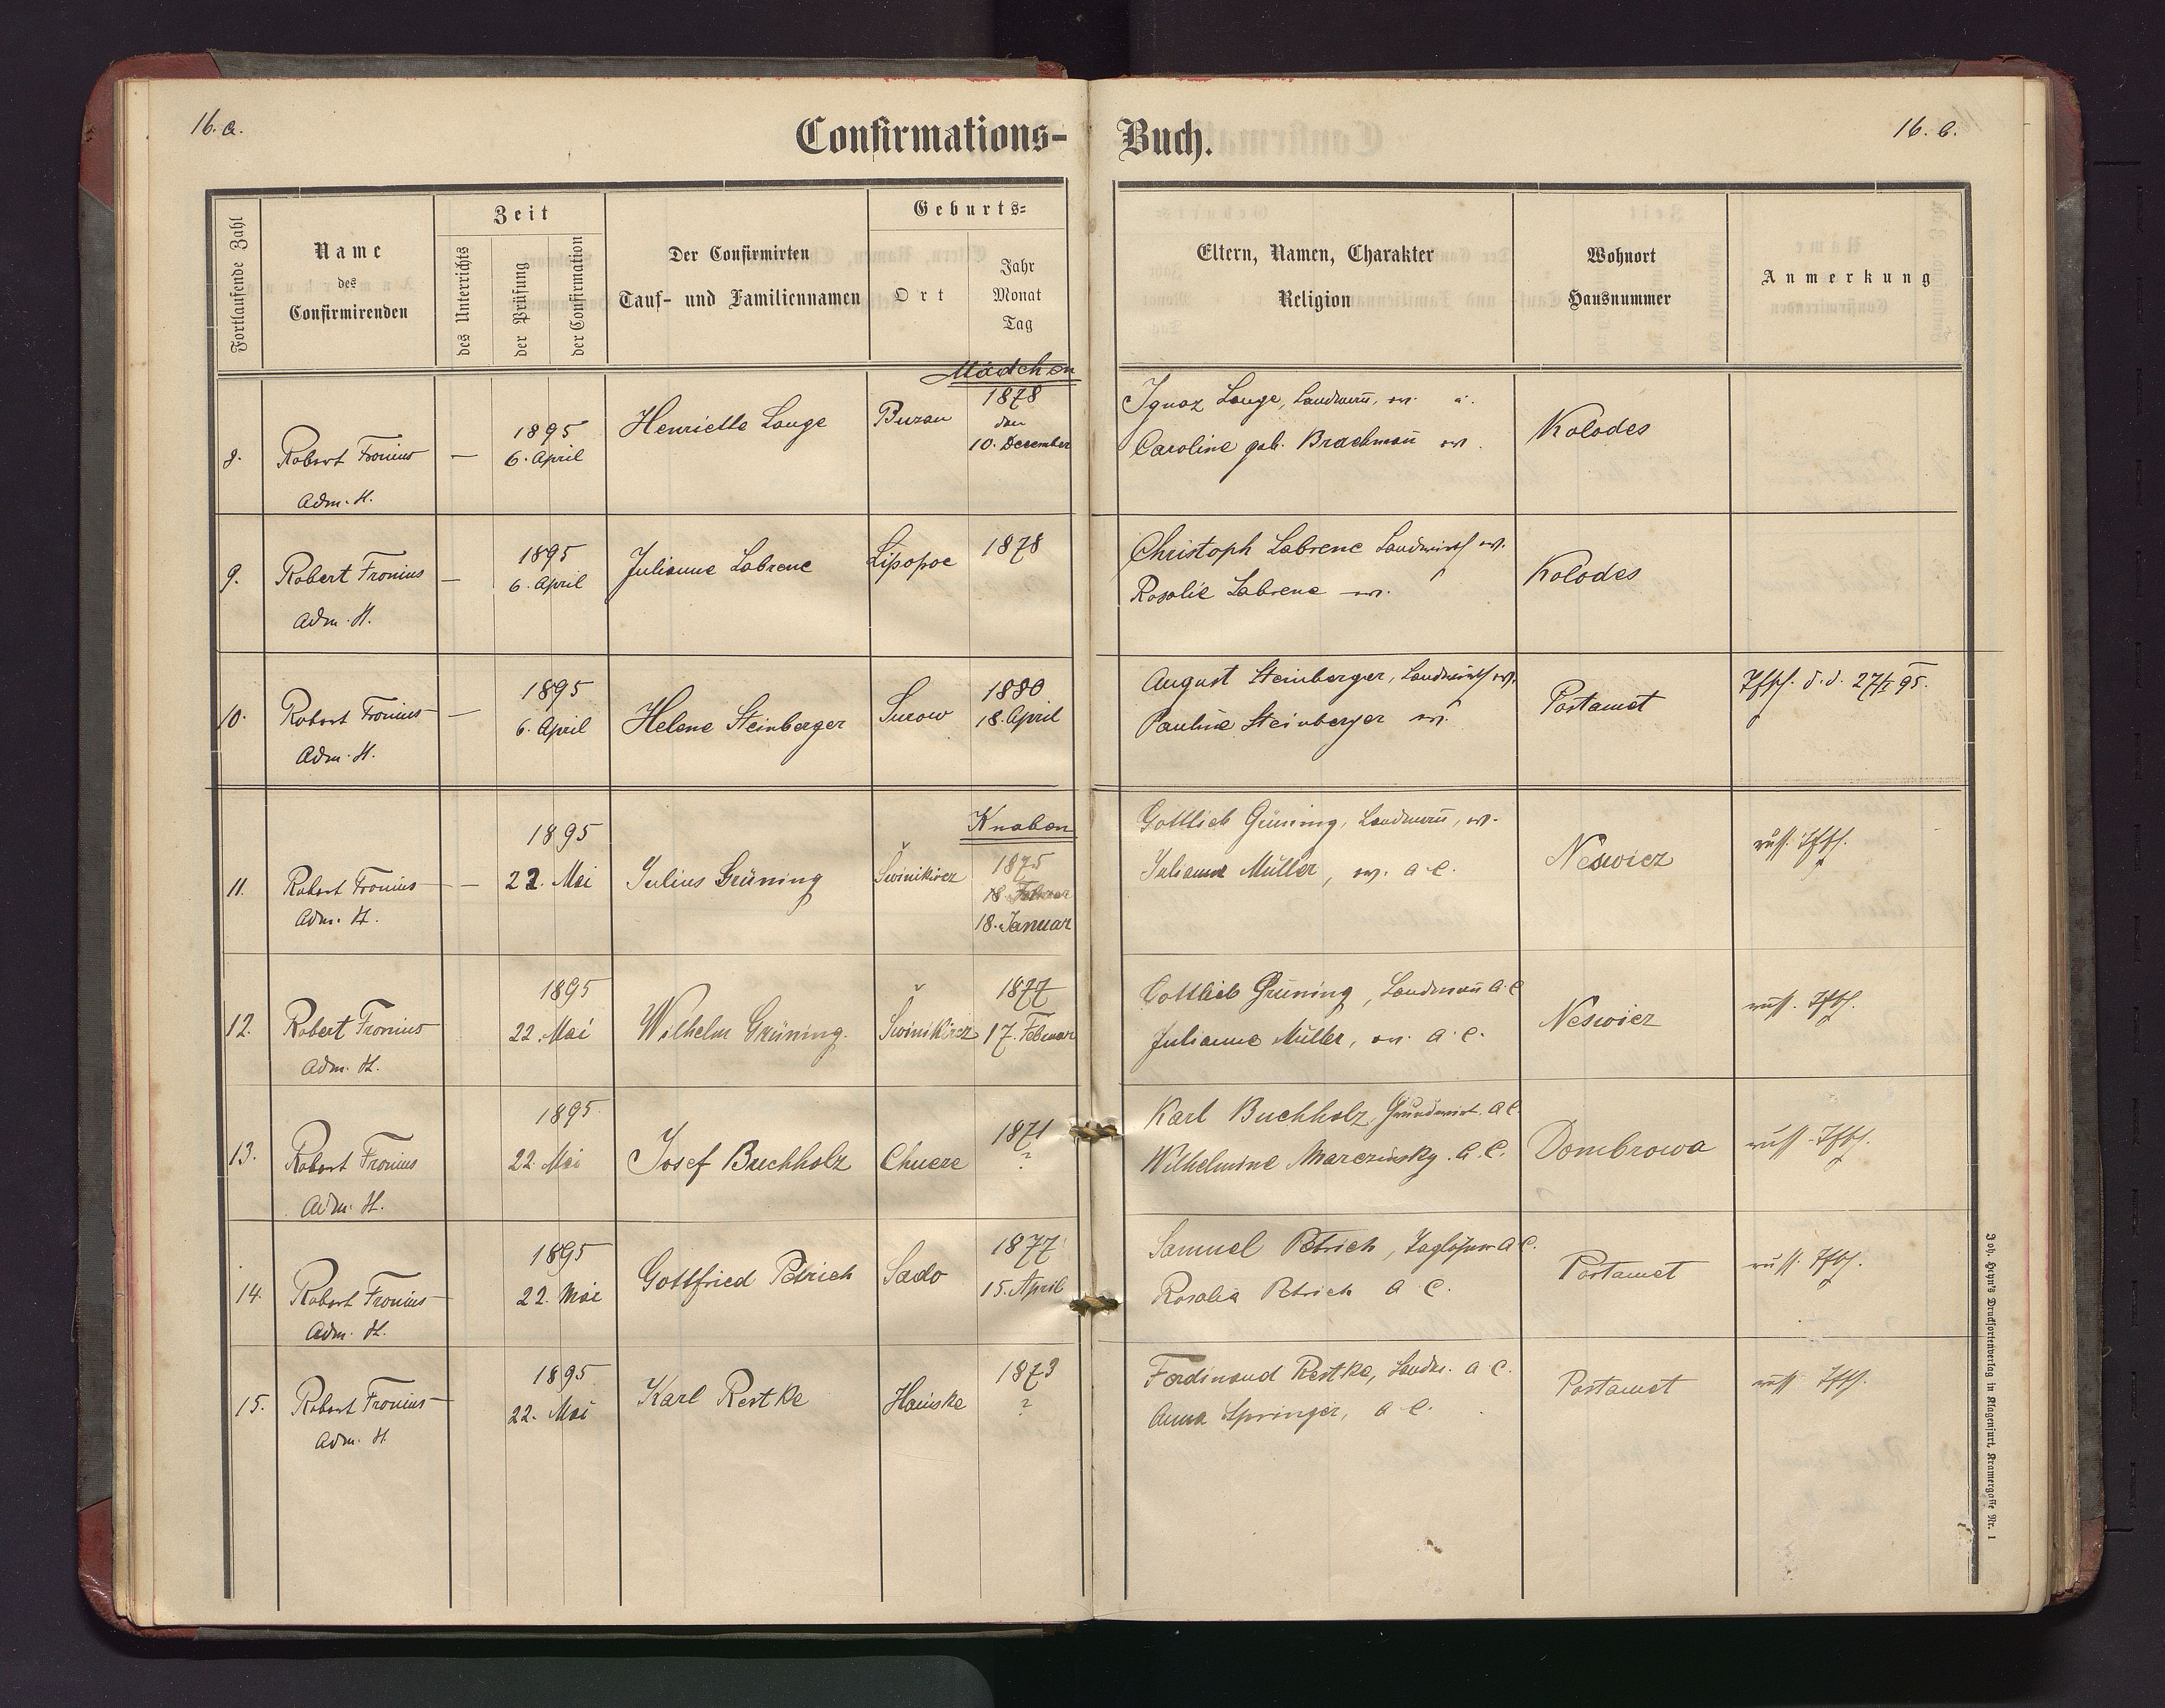 16. a.
16. b.
Confirmations- Buch.
Fortlaufende Zahl
Name
des
Confirmirenden
Zeit
des Unterrichts
der Prüfung
der Confirmation
Der Confirmirten
Tauf- und Familiennamen
Geburts-
Ort
Jahr
Monat
Tag
Eltern, Namen, Charakter
Religion
Wohnort
Hausnummer
Anmerkung
Mädchen
8.
Robert Fronius
Adm. H.
—
1895
6. April
Henriette Lange
Buzau
1878
den
10. December
Ignaz Lange, Landmañ, ev.
Caroline geb. Brachmañ ev.
Kolodes
9.
Robert Fronius
Adm. H.
—
1895
6. April
Julianne Labrenc
Lipopoe
1878
Christoph Labrenc Landwirth ev.
Rosalie Labrenc ev.
Kolodes
10.
Robert Fronius
Adm. H.
—
1895
6. April
Helene Steinberger
Sucow
1880
18. April
August Steinberger, Landwirth ev.
Pauline Steinberger ev.
Postamet
d. d. 27/I 95.
Knaben
11.
Robert Fronius
Adm. H.
—
1895
22. Mai
Julius Grüning
Świnikirez
1875
18. Februar
18. Januar
Gottlieb Grüning, Landmañ, ev.
Julianna Müller, ev. A. C.
Neswiez
russ.
12.
Robert Fronius
Adm. H.
1895
22. Mai
Wilhelm Grüning.
1877
17. Februar
Gottlieb Grüning, Landmañ A. C.
Julianne Müller, ev. A. C.
Neswiez
russ.
13.
Robert Fronius
Adm. H.
1895
22. Mai
Josef Buchholz
Chuere
1871
?
Karl Buchholz, Grundwirt. A C.
Wilhelmine Marczinsky. A. C.
Dombrowa
russ.
14.
Robert Fronius
Adm. H.
1895
22. Mai
Gottfried Petrich
Sado
1877
15. April
Samuel Petrich, Taglöhner A C.
Rosalia Petrich A C.
Postamet
russ.
15.
Robert Fronius
Adm. H.
1895
22. Mai
Karl Restke
Hainske
1873
?
Ferdinand Restke, Landm. A. C.
Anna Springer, A C.
Postamet
russ.
Joh. Heyn's Drucksortenverlag in Klagenfurt, Kramergasse Nr. 1